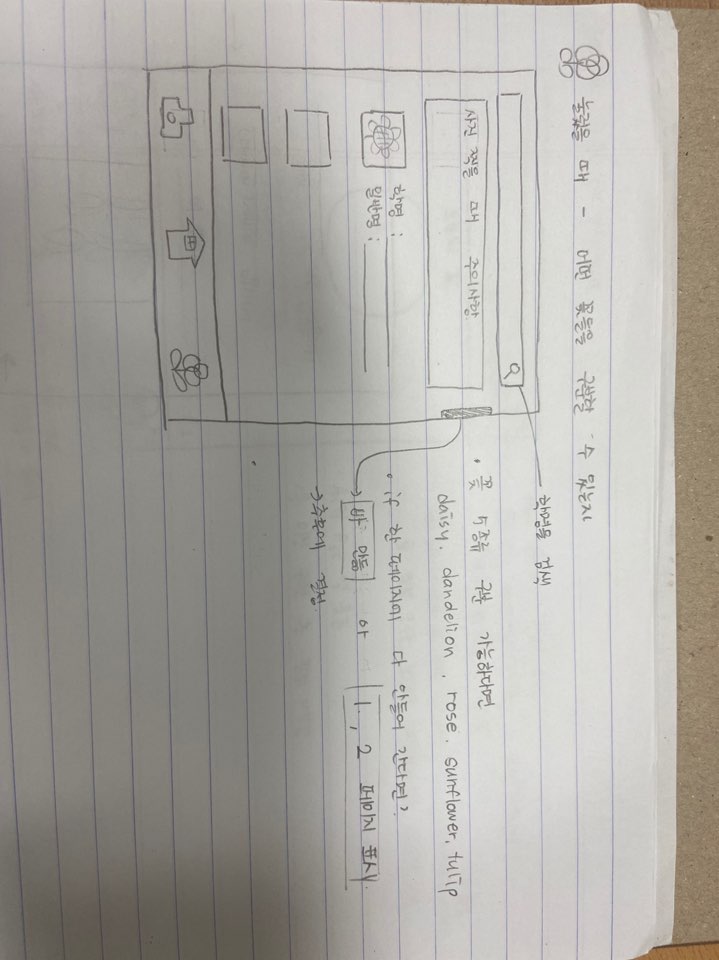 눌렀을 때 - 어떤 꽃들을 구분할 수 있는지
학명을 검색
사진 찍을 때 주의사항
학명 :
일반명 :
• 꽃 5종류 구분 가능하다면
daisy, dandelion, rose, sunflower, tulip
• if 한 페이지에 다 안들어 간다면?
→ 바 만듦 or 1, 2 페이지 표시
→ 추후에 결정